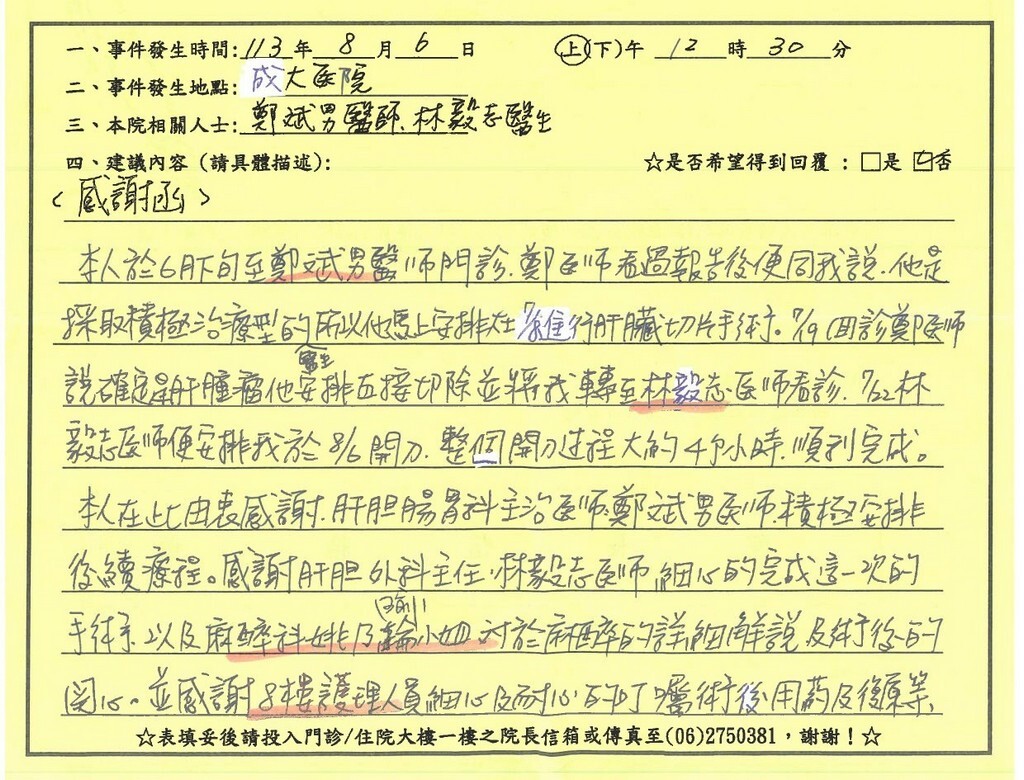 一、事件發生時間:113年8月6日 (上)(下)午12時30分
二、事件發生地點:成大医院
三、本院相關人士:鄭斌男醫師.林毅志醫生
四、建議內容(請具體描述): ☆是否希望得到回覆:□是 ☑否
<感謝函>
本人於6月下旬至鄭斌男醫師門診.鄭医师看過報告後便同我說.他是
採取積極治療型的所以他馬上安排在7/ 進行肝臟切片手術.7/9回診鄭医师
醫生
說確定是肝腫瘤他安排直接切除並將我轉至林毅志医师看診.7/22林
毅志医师便安排我於8/6開刀.整個開刀过程大約4个小時.順利完成。
本人在此由衷感謝.肝胆腸胃科主治医师鄭斌男医师.積極安排
後續療程。感謝肝胆外科主任.林毅志医师細心的完成這一次的
手術.以及麻醉科姚乃 小姐.対於麻醉的詳細解說及術後的
関心。並感謝8樓護理人員細心及耐心的叮嚀術後用葯及復原等.
☆表填妥後請投入門診/住院大樓一樓之院長信箱或傳真至(06)2750381，謝謝！☆